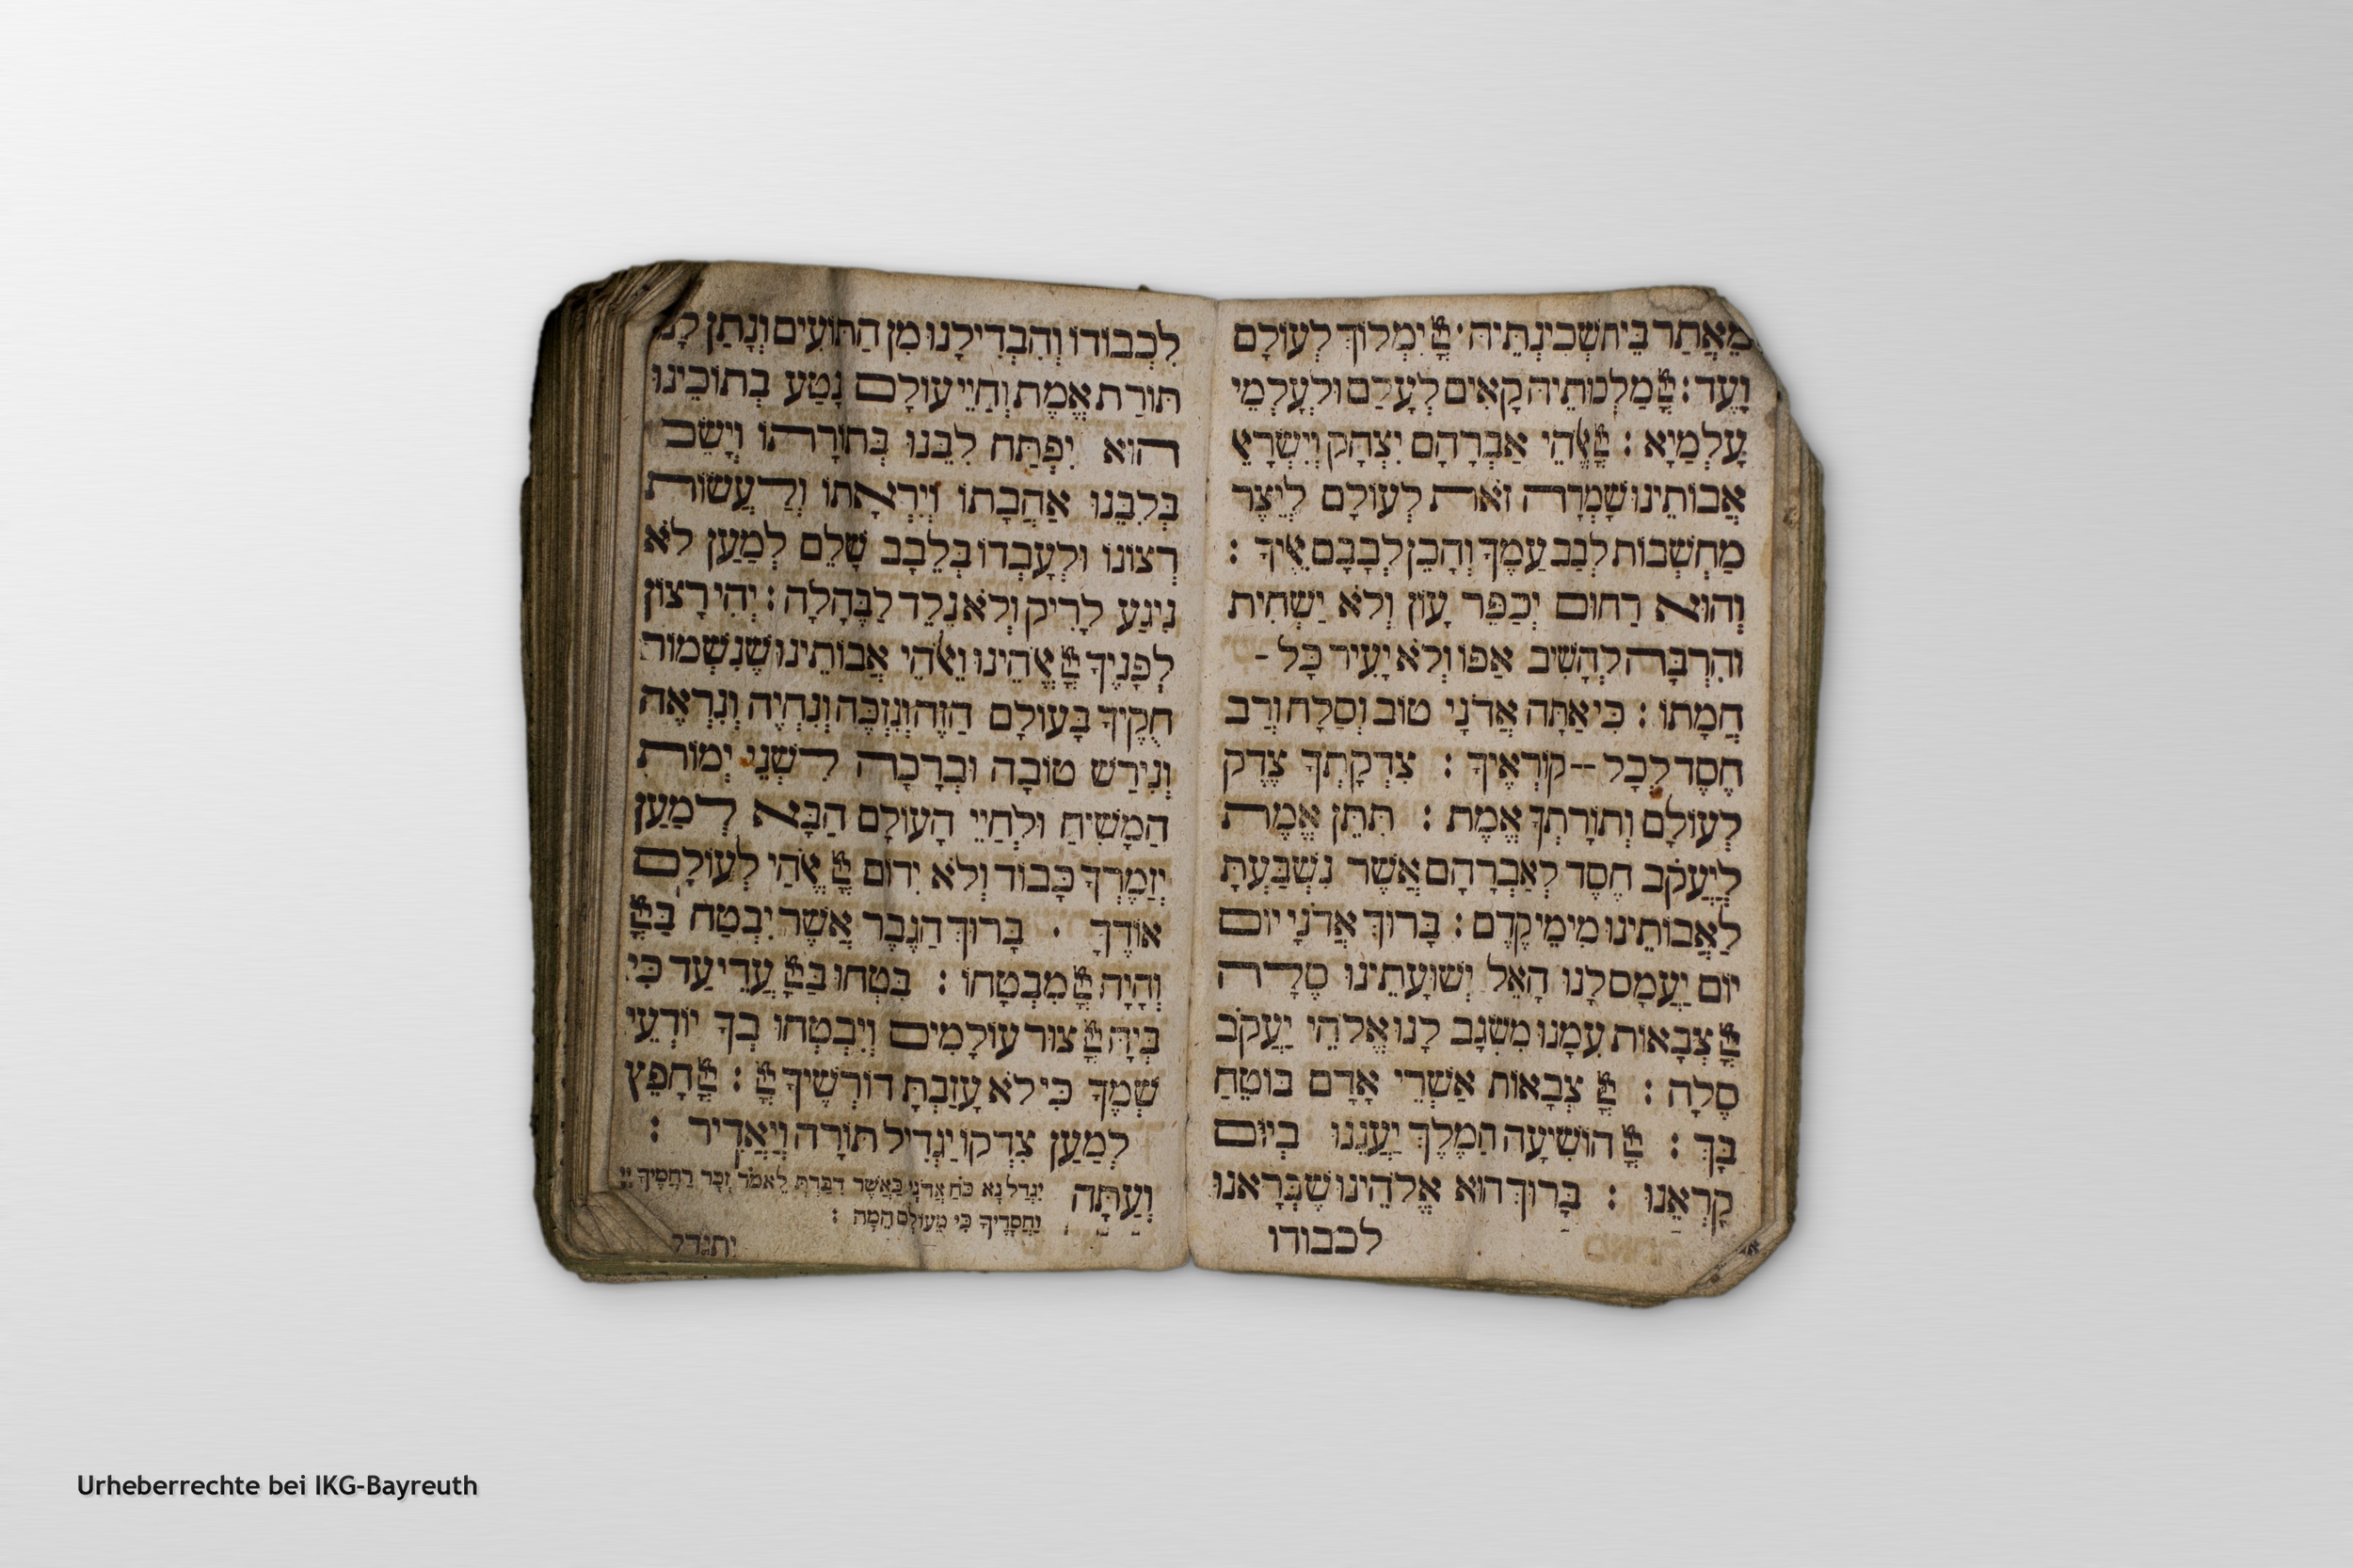 מֵאֲתַר בֵּית שְׁכִינְתֵּיהּ · יְיָ יִמְלוֹךְ לְעוֹלָם
וָעֶד : יְיָ מַלְכוּתֵיהּ קָאֵים לְעָלַם וּלְעָלְמֵי
עָלְמַיָא : יְיָ אֱלֹהֵי אַבְרָהָם יִצְחָק וְיִשְׂרָאֵל
אֲבוֹתֵינוּ שָׁמְרָה זֹאת לְעוֹלָם לְיֵצֶר
מַחְשְׁבוֹת לְבַב עַמֶּךָ וְהָכֵן לְבָבָם אֵלֶיךָ :
וְהוּא רַחוּם יְכַפֵּר עָוֹן וְלֹא יַשְׁחִית
וְהִרְבָּה לְהָשִׁיב אַפּוֹ וְלֹא יָעִיר כָּל-
חֲמָתוֹ : כִּי אַתָּה אֲדֹנָי טוֹב וְסַלָח וְרַב
חֶסֶד לְכָל-קוֹרְאֶיךָ : צִדְקָתְךָ צֶדֶק
לְעוֹלָם וְתוֹרָתְךָ אֱמֶת : תִּתֵּן אֱמֶת
לְיַעֲקֹב חֶסֶד לְאַבְרָהָם אֲשֶׁר נִשְׁבַּעְתָּ
לַאֲבוֹתֵינוּ מִימֵי קֶדֶם : בָּרוּךְ אֲדֹנָי יוֹם
יוֹם יַעֲמָס לָנוּ הָאֵל יְשׁוּעָתֵינוּ סֶלָה
יְיָ צְבָאוֹת עִמָּנוּ מִשְׂגָּב לָנוּ אֱלֹהֵי יַעֲקֹב
סֶלָה : יְיָ צְבָאוֹת אַשְׁרֵי אָדָם בּוֹטֵחַ
בָּךְ : יְיָ הוֹשִׁיעָה הַמֶּלֶךְ יַעֲנֵנוּ בְיוֹם
קָרְאֵנוּ : בָּרוּךְ הוּא אֱלֹהֵינוּ שֶׁבְּרָאנוּ
לכבודו
לִכְבוֹדוֹ וְהִבְדִּילָנוּ מִן הַתּוֹעִים וְנָתַן לָנוּ
תּוֹרַת אֱמֶת וְחַיֵּי עוֹלָם נָטַע בְּתוֹכֵינוּ
הוּא יִפְתַּח לִבֵּנוּ בְּתוֹרָתוֹ וְיָשֵׂם
בְּלִבֵּנוּ אַהֲבָתוֹ וְיִרְאָתוֹ וְלַעֲשׂוֹת
רְצוֹנוֹ וּלְעָבְדוֹ בְּלֵבָב שָׁלֵם לְמַעַן לֹא
נִיגַע לָרִיק וְלֹא נֵלֵד לַבֶּהָלָה : יְהִי רָצוֹן
לְפָנֶיךָ יְיָ אֱלֹהֵינוּ וֵאלֹהֵי אֲבוֹתֵינוּ שֶׁנִּשְׁמוֹר
חֻקֶּיךָ בָּעוֹלָם הַזֶּה וְנִזְכֶּה וְנִחְיֶה וְנִרְאֶה
וְנִירַשׁ טוֹבָה וּבְרָכָה לִשְׁנֵי יְמוֹת
הַמָּשִׁיחַ וּלְחַיֵּי הָעוֹלָם הַבָּא לְמַעַן
יְזַמֶּרְךָ כָּבוֹד וְלֹא יִדּוֹם יְיָ אֱלֹהַי לְעוֹלָם
אוֹדֶךָּ · בָּרוּךְ הַגֶּבֶר אֲשֶׁר יִבְטַח בַּיְיָ
וְהָיָה יְיָ מִבְטָחוֹ : בִּטְחוּ בַיְיָ עֲדֵי עַד כִּי
בְּיָהּ יְיָ צוּר עוֹלָמִים וְיִבְטְחוּ בְךָ יוֹדְעֵי
שְׁמֶךָ כִּי לֹא עָזַבְתָּ דוֹרְשֶׁיךָ יְיָ : יְיָ חָפֵץ
לְמַעַן צִדְקוֹ יַגְדִּיל תּוֹרָה וְיַאֲדִיר :
וְעַתָּה יִגְדַּל נָא כֹּחַ אֲדֹנָי כַּאֲשֶׁר דִּבַּרְתָּ לֵאמֹר זְכֹר רַחֲמֶיךָ יְיָ
וַחֲסָדֶיךָ כִּי מֵעוֹלָם הֵמָּה :
יתגדל
Urheberrechte bei IKG-Bayreuth